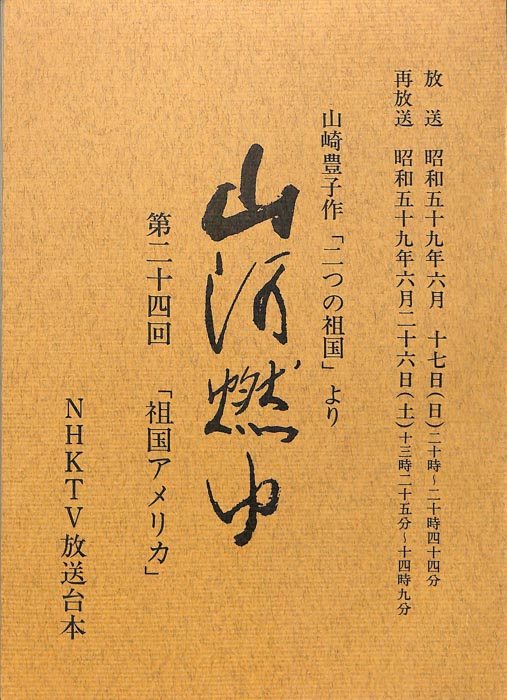 放送　昭和五十九年六月　十七日(日)二十時～二十時四十四分
再放送　昭和五十九年六月二十六日(土)十三時二十五分～十四時九分
山崎豊子作「二つの祖国」より
山河燃ゆ
第二十四回　「祖国アメリカ」
NHKTV放送台本